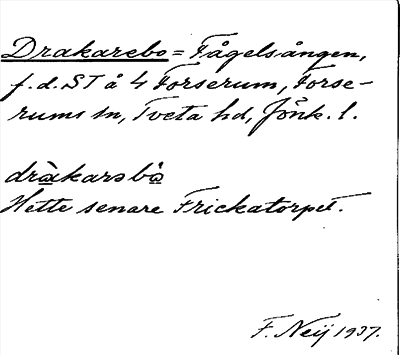 Drakarebo = Fågelsången,
f.d. ST å 4 Forserum, Forse-
rums sn, Tveta hd, Jönk. l.
dràkarəbò
Hette senare Frickatorpet.
F. Neij 1937.